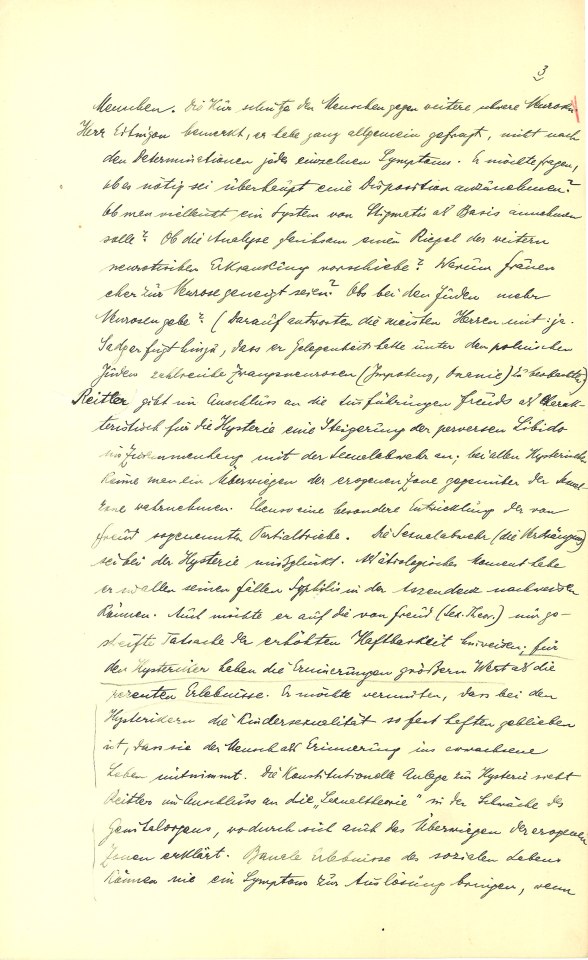 3
Menschen. Die Kur schütze den Menschen gegen weitere schwere Neurosen.
Herr Eitingon bemerkt, er habe ganz allgemein gefragt, nicht nach
den Determinationen jedes einzelnen Symptoms. Er möchte fragen,
ob es nötig sei überhaupt eine Disposition anzunehmen?
Ob man vielleicht ein System von Stigmatis als Basis annehmen
solle? Ob die Analyse gleichsam einen Riegel des weitern
neurotischen Erkrankung vorschiebe? Warum Frauen
eher zur Neurose geneigt seien? Ob es bei den Juden mehr
Neurosen gebe? (Darauf antworten die meisten Herren mit: ja.
Sadger fügt hinzu, dass er Gelegenheit hatte unter den polnischen
Juden zahlreiche Zwangsneurosen (Impotenz, Onanie) zu beobachten)
Reitler gibt im Anschluss an die Ausführungen Freuds als Charak-
teristisch für die Hysterie eine Steigerung der perversen Libido
im Zusammenhang mit der Sexualabwehr an; bei allen Hysterischen
könne man ein Überwiegen der erogenen Zone gegenüber der Sexual-
zone wahrnehmen. Ebenso eine besondere Entwicklung der von
Freud sogenannten Partialtriebe. Die Sexualabwehr (die Verdrängung)
sei bei der Hysterie missglückt. Als ätiologisches Moment habe
er in allen seinen Fällen Syphilis in der Aszendenz nachweisen
können. Auch möchte er auf die von Freud (Sex. Theor.) nur ge-
streifte Tatsache der erhöhten Haftbarkeit hinweisen; für
den Hysteriker haben die Erinnerungen größern Wert als die
rezenten Erlebnisse. Er möchte vermuten, dass bei den
Hysterikern die Kindersexualität so fest haften geblieben
ist, dass sie der Mensch als Erinnerung ins erwachsene
Leben mitnimmt. Die konstitutionelle Anlage zur Hysterie sieht
Reitler im Anschluss an die „Sexualtheorie" in der Schwäche des
Genitalorgans, wodurch sich auch das Überwiegen der erogenen
Zonen erklärt. Banale Erlebnisse des sozialen Lebens
können nie ein Symptom zur Auslösung bringen, wenn